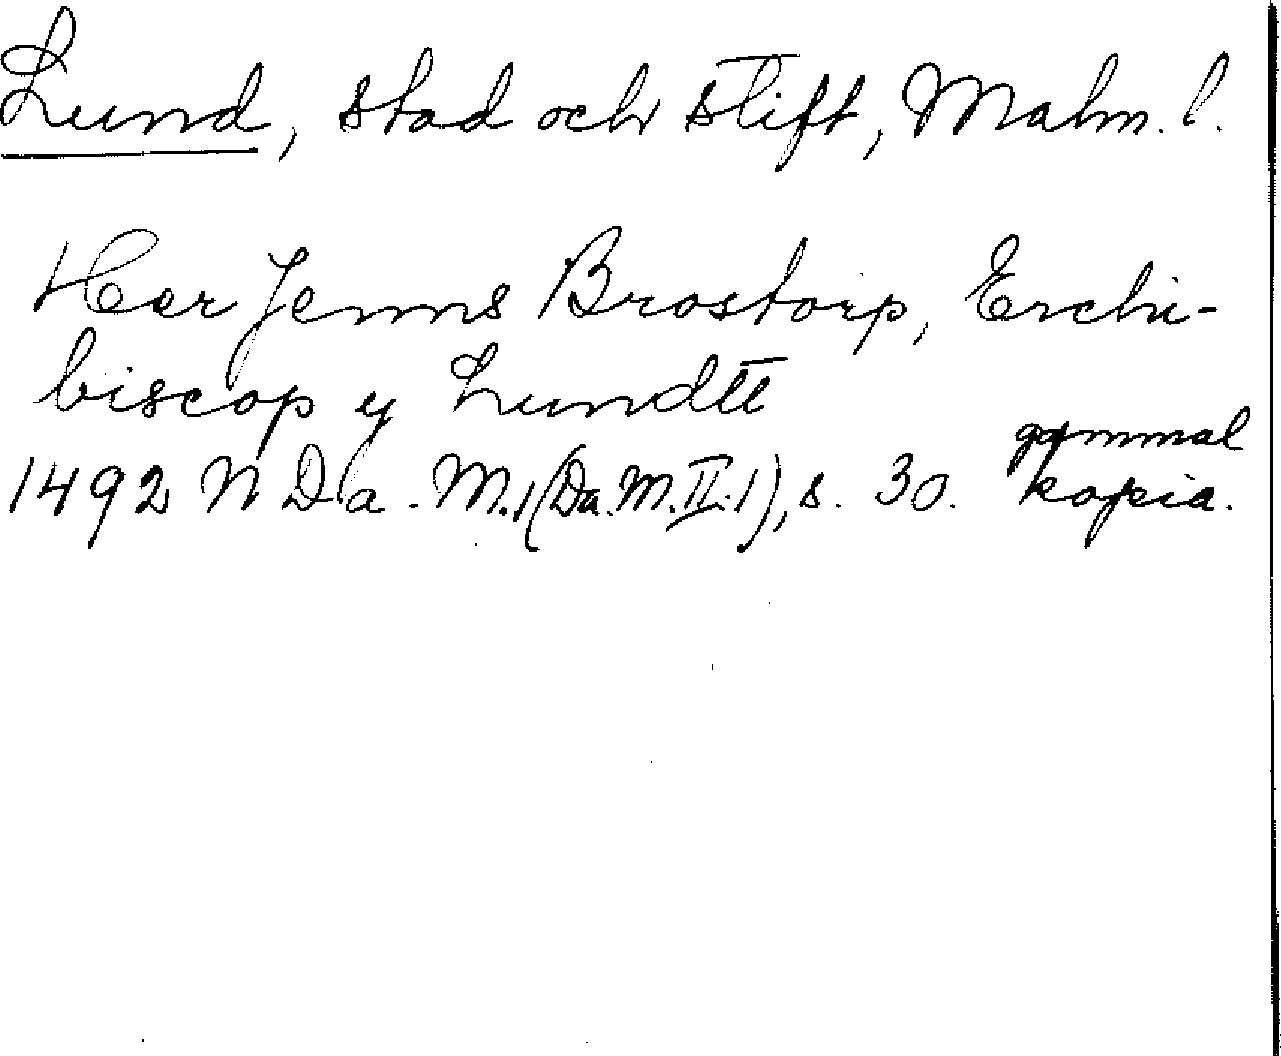 Lund, stad och stift, Malm. l.
Her Jenns Brostorp, Erchi-
biscop y Lundtt
gammal
1492 N Da. M.1(Da.M.II.1), s. 30. kopia.